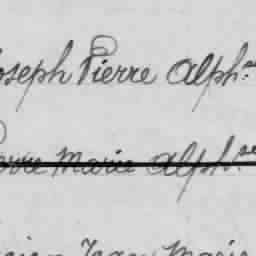 Joseph Pierre Alph.se
Pierre Marie Alph.se
Jean Marie